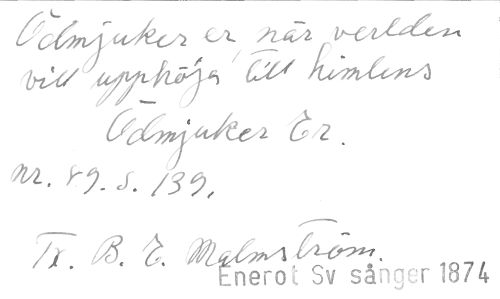 Ödmjuker er, när verlden
vill upphöja till himlens
Ödmjuker Er.
nr. 89. s. 139.
Tx. B. E. Malmström.
Enerot Sv sånger 1874